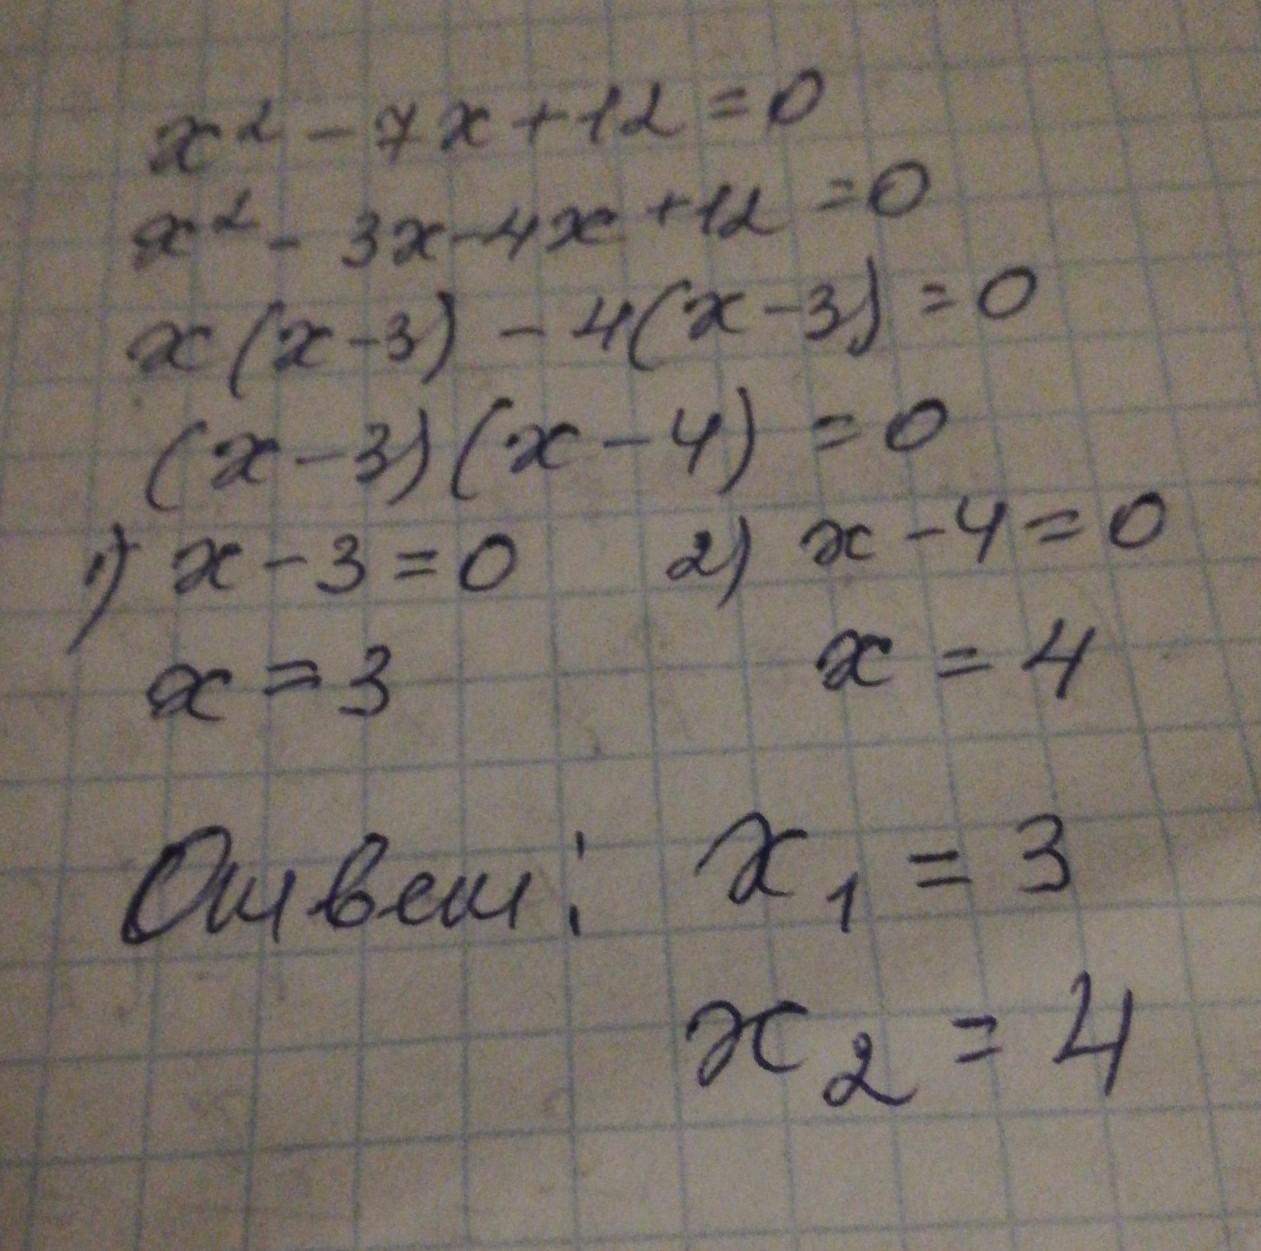 x² - 7x + 12 = 0
x² - 3x - 4x + 12 = 0
x(x - 3) - 4(x - 3) = 0
(x - 3)(x - 4) = 0
1) x - 3 = 0 2) x - 4 = 0
x = 3 x = 4
Ответ: x₁ = 3
x₂ = 4